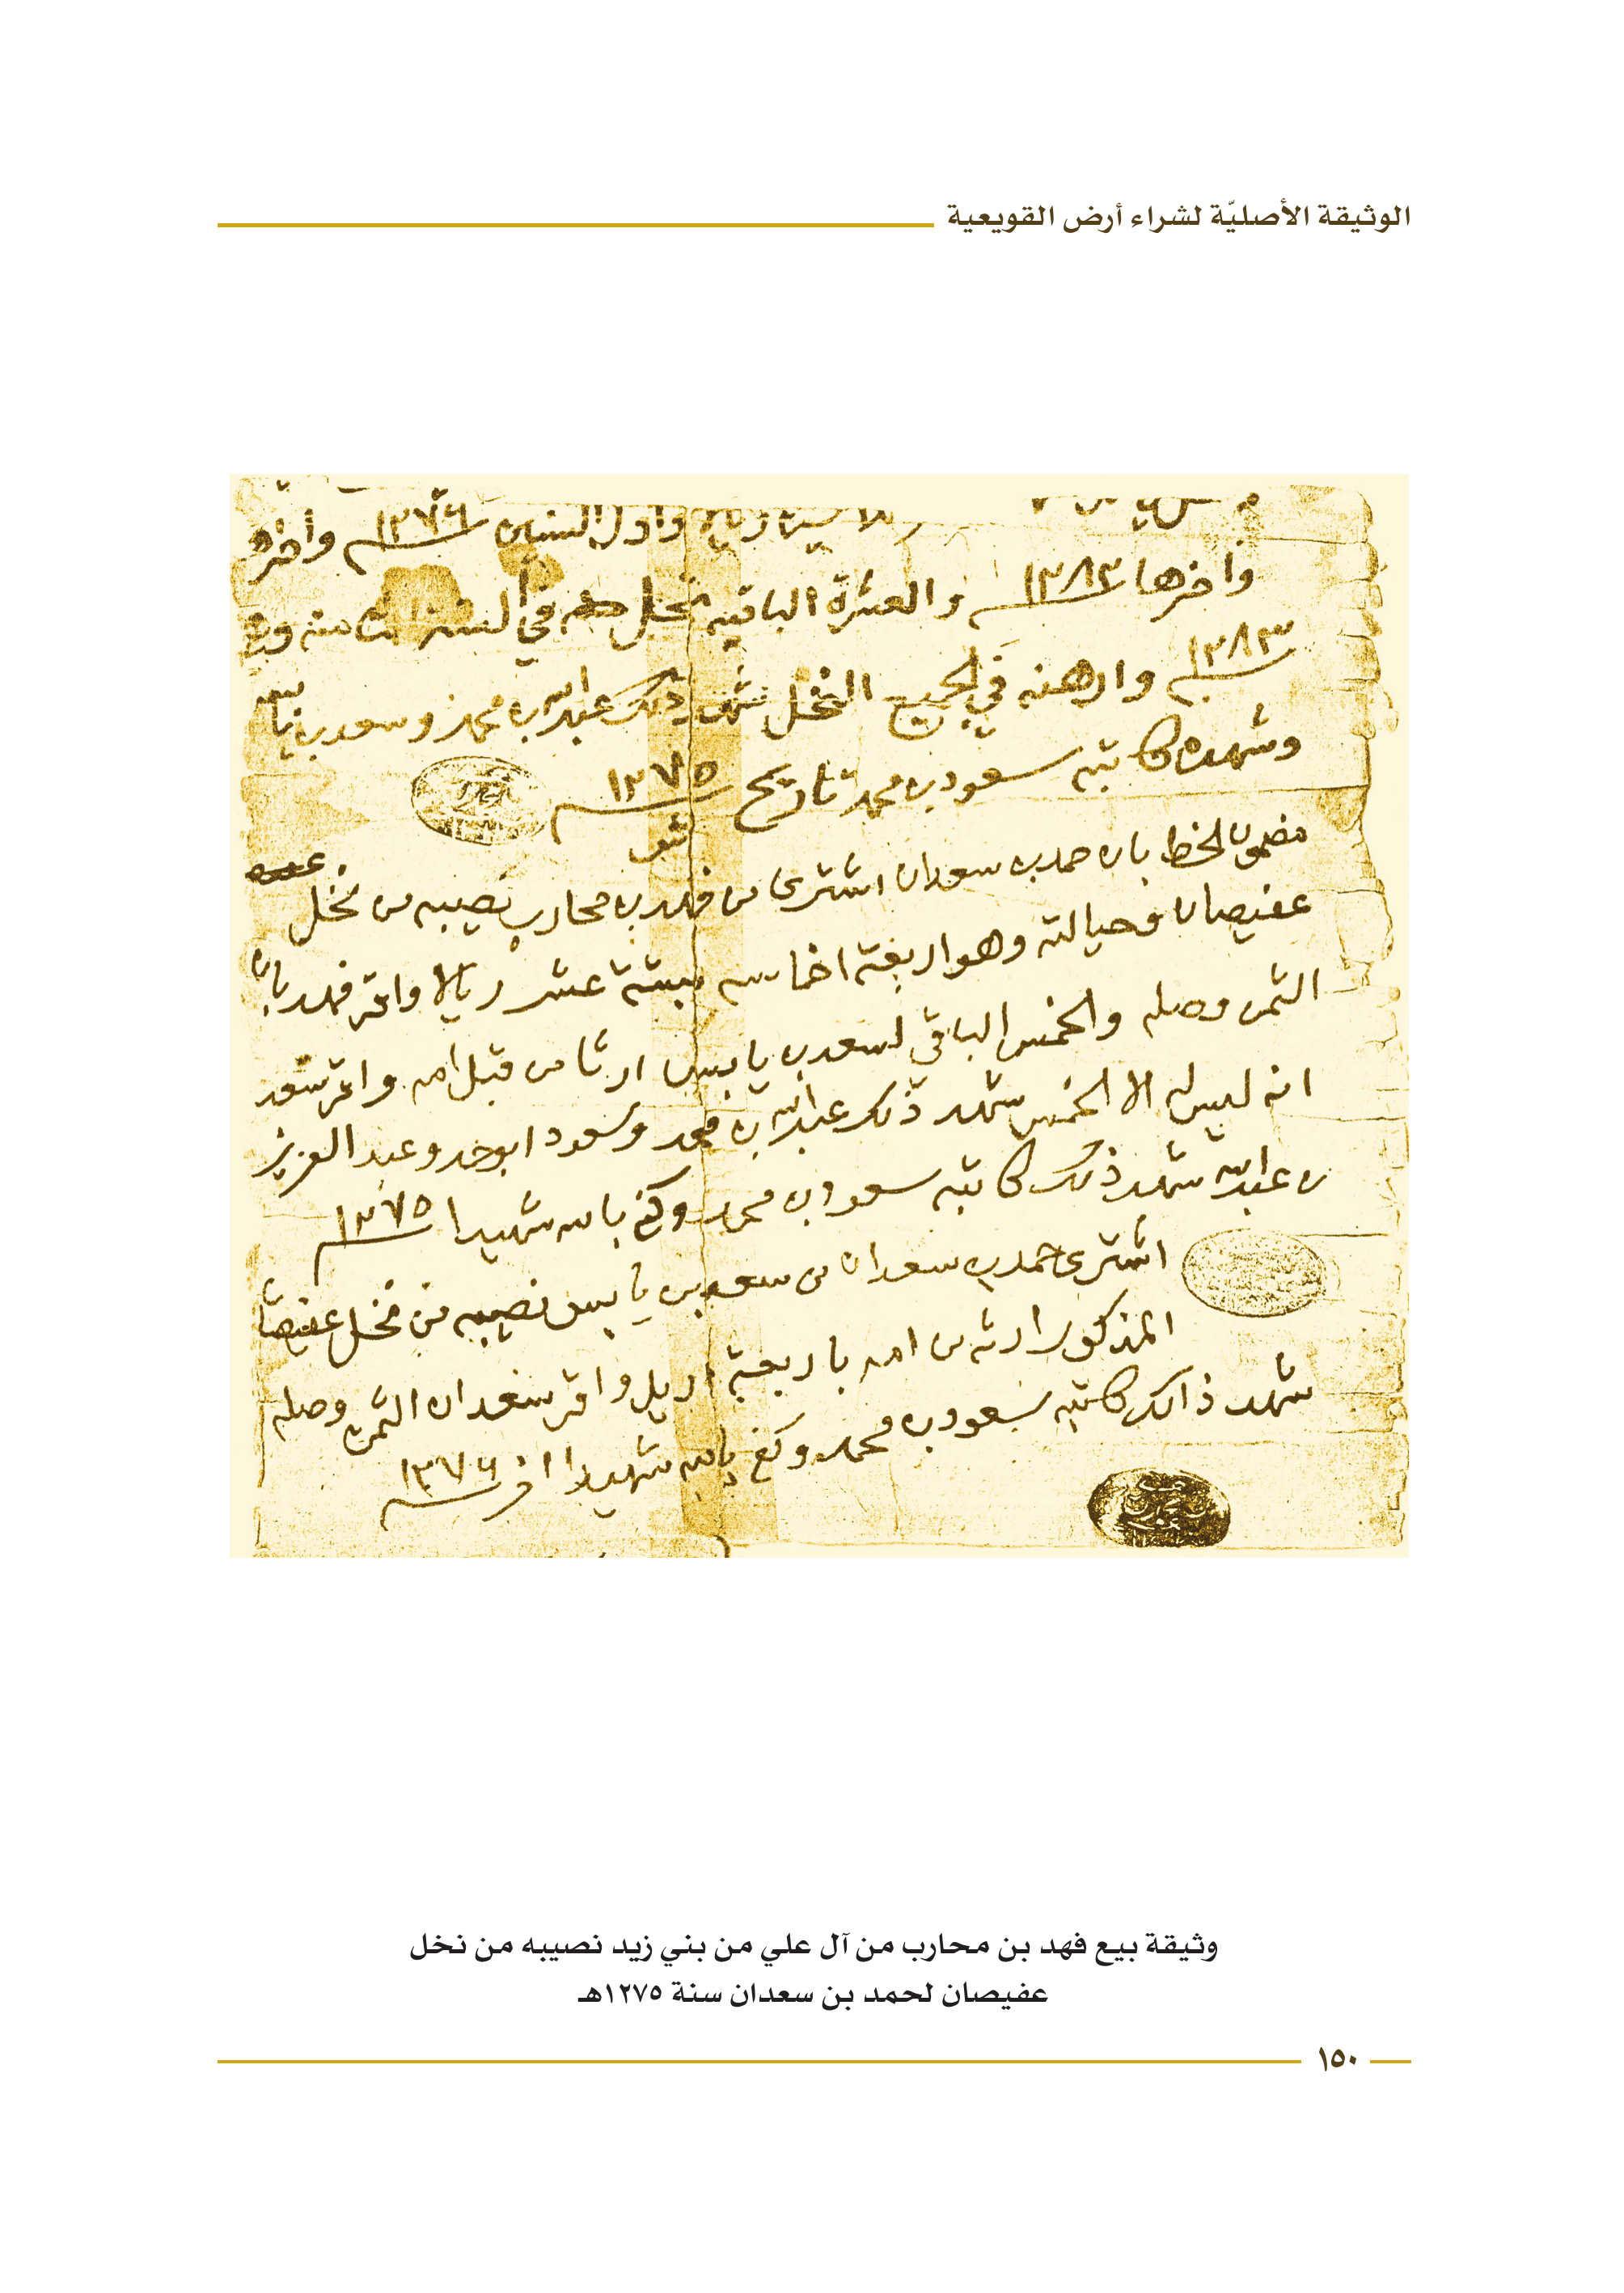 الوثيقة الأصليّة لشراء أرض القويعية
واول السنين ١٢٧٦ وأخر
وأخرها ١٢٨٢ والعشرة الباقيه تحل في السنه
١٢٨٣ وارهنه في الجميع النخل شهد ذلك عبدالله بن محمد وسعد بن يابس
وشهده كاتبه سعود بن محمد تاريخ ١٢٧٥
مضمون الخط بان حمد بن سعدان اشترى من فهد بن محارب نصيبه من نخل
عفيصان وحيالته وهو اربعة اخماسه بستة عشر ريالا واقر فهد بان
الثمن وصله والخمس الباقي لسعد بن يابس ارثا من قبل امه واقر سعد
انه ليس له الا الخمس شهد ذلك عبدالله بن محمد وسعود ابو حمد وعبد العزيز
بن عبدالله شهد ذلك كاتبه سعود بن محمد وكفى بالله شهيدا ١٢٧٥
اشترى حمد بن سعدان من سعد بن يابس نصيبه من نخل عفيصان
المذكور ارثه من امه باربعة اريل واقر سعد ان الثمن وصله
شهد ذالك كاتبه سعود بن محمد وكفى بالله شهيدا اخر ١٢٧٦
وثيقة بيع فهد بن محارب من آل علي من بني زيد نصيبه من نخل
عفيصان لحمد بن سعدان سنة ١٢٧٥هـ
١٥٠